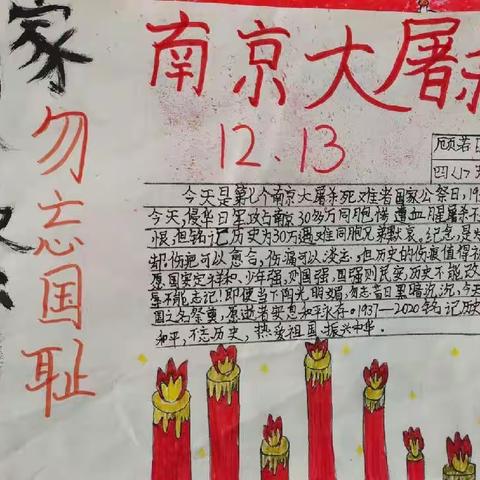 南京大屠杀
12.13
家
勿忘国耻
顾若
四(1)
今天是第七个南京大屠杀死难者国家公祭日,19
今天,侵华日军攻占南京30多万同胞惨遭血腥屠杀不
恨,但铭记历史为30万遇难同胞兄弟默哀。纪念,是
却,伤疤可以愈合,伤痛可以淡去,但历史的伤最值得
愿国安定祥和,少年强,则国强,国强则民安,历史不能改
事不能忘记!即使当下阳光明媚,勿忘昔日黑暗沉沉,今天
国之名祭奠,愿逝者安息和平永存。1937—2020铭记历史
和平,不忘历史,热爱祖国,振兴中华。